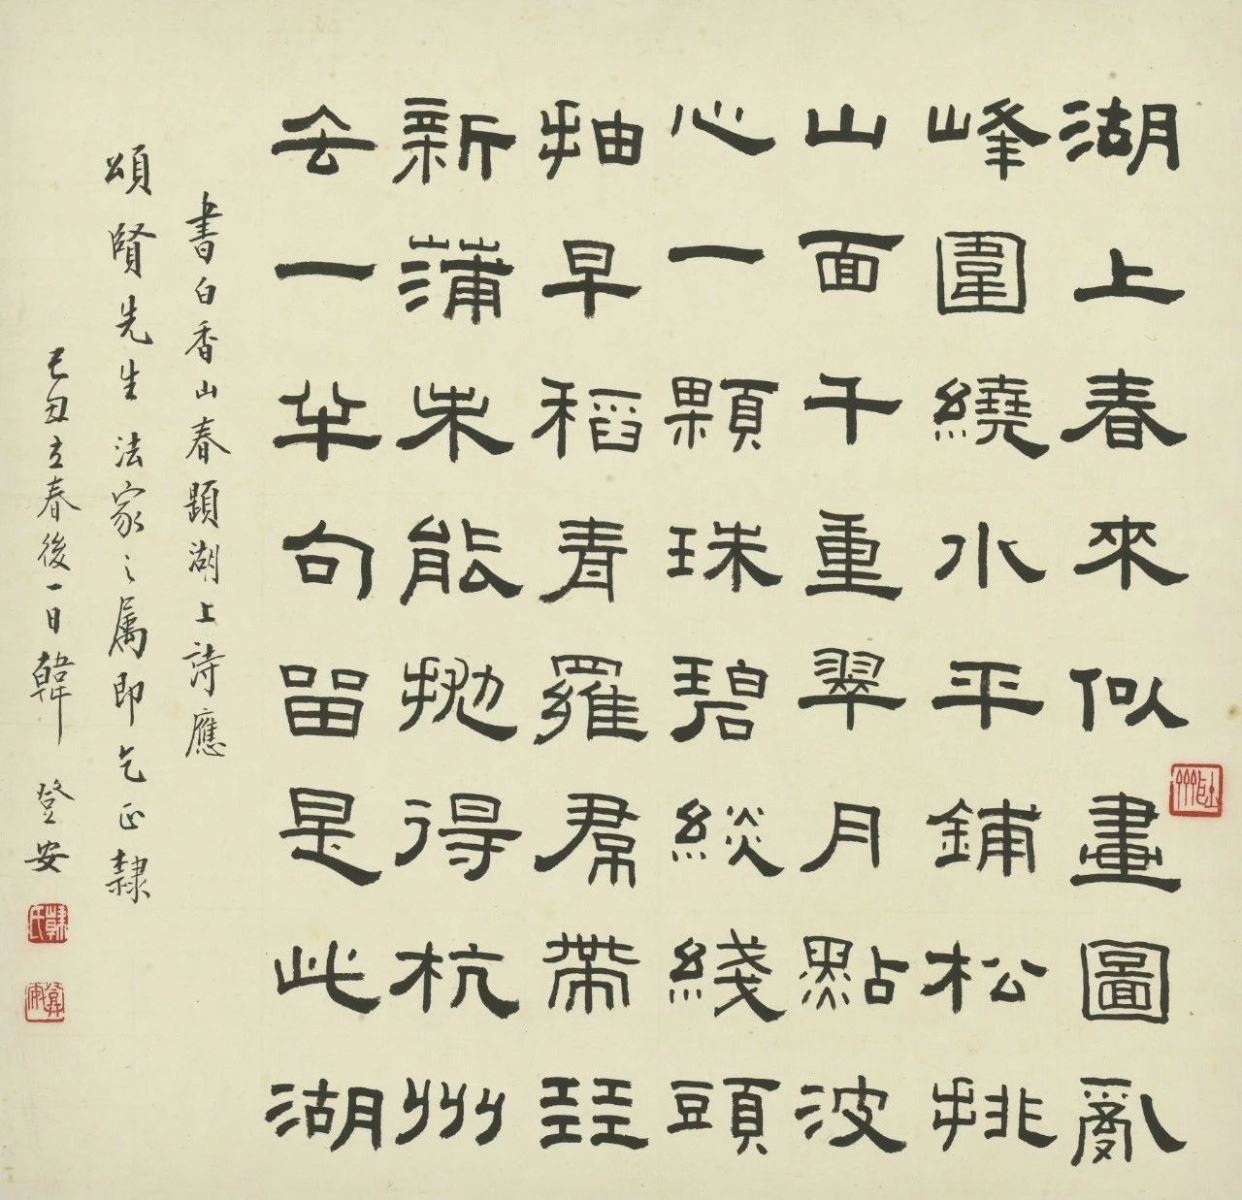 湖上春來似畫圖亂
峰圍繞水平鋪松排
山面千重翠月點波
心一顆珠碧緂綫頭
抽早稻青羅帬帶㠭
新蒲未能拋得杭州
去一半句留是此湖
書白香山春題湖上詩應
頌賢先生法家之属即乞正隸
己丑立春後一日韓登安
韓氏
登安